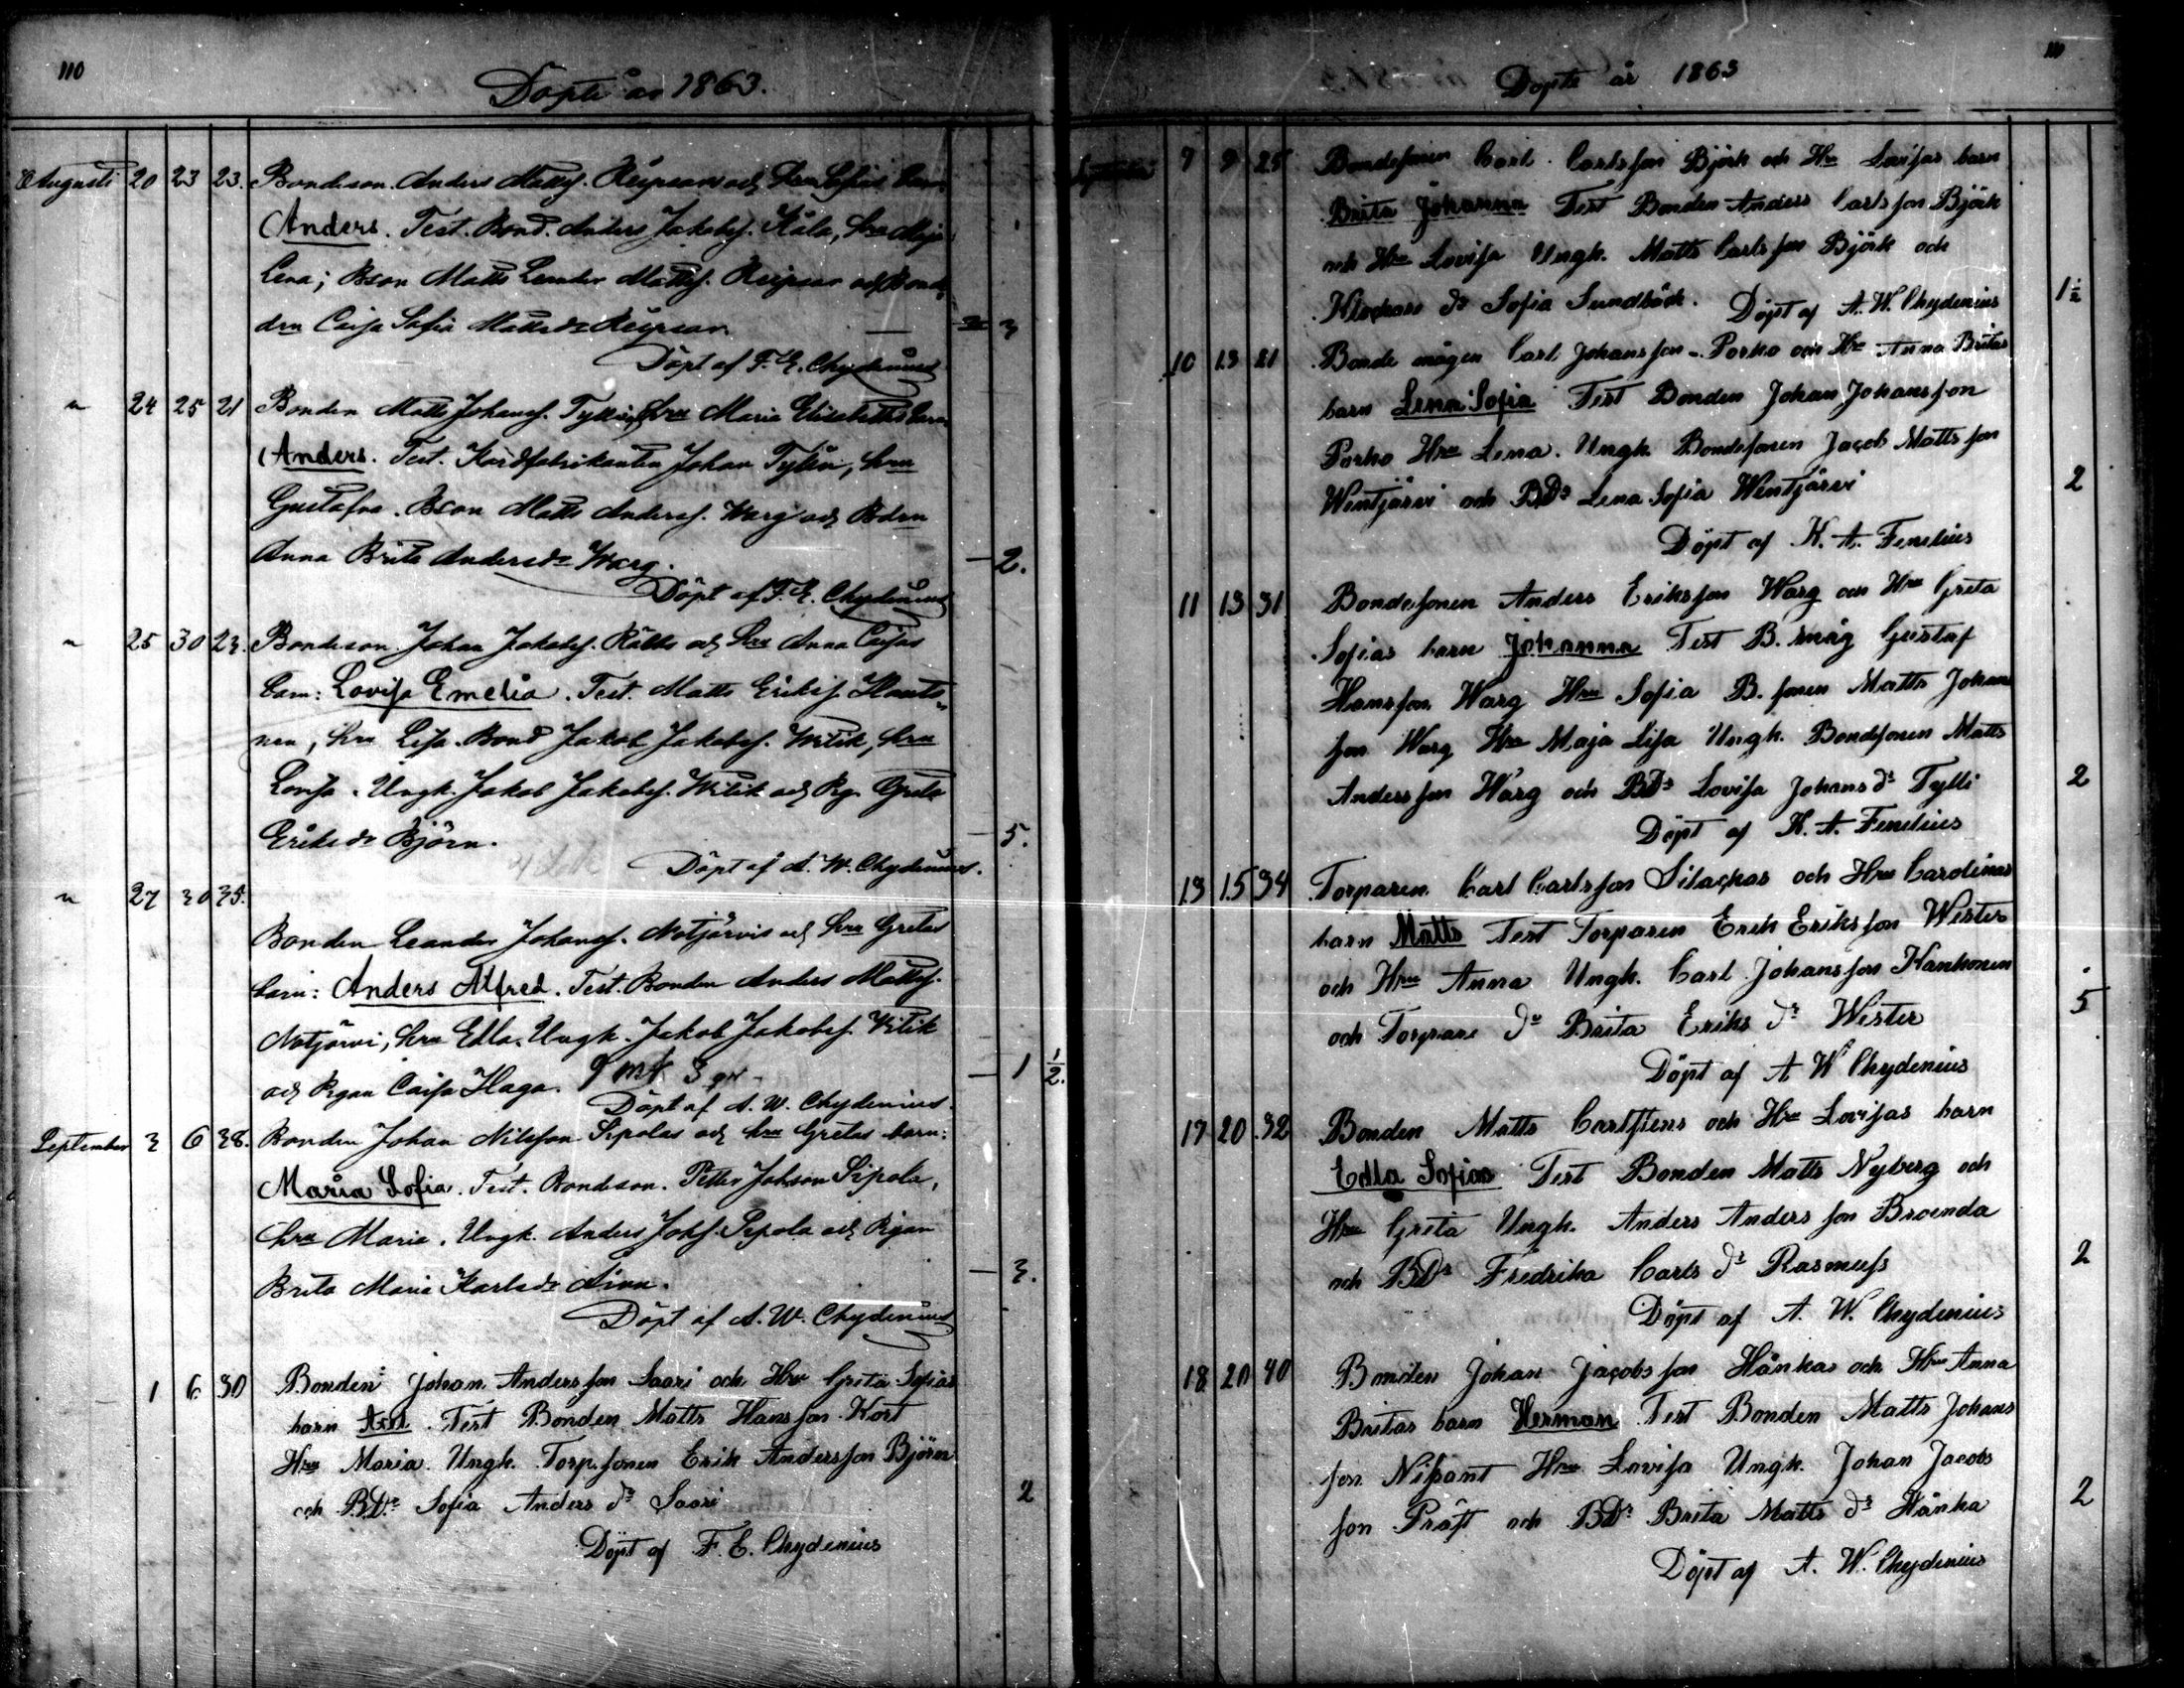 110
Döpte år 1863.
Augusti 20 23 23. Bondeson Anders Mattsf. och Hru Sofias barn
Anders. Test. Bond. Anders Jakobsf. Kåla, hru Maja
Lena; Bson Matts Leander Mattsf. och Bond
drn Caisa Sofia Mattsdr 3
Döpt af F. E. Chydenius
" 24 25 21 Bonden Matts Johansf. hru Maria Elisabeths barn
Anders. Test. Johan, hru
Gustafva. Bson Matts Andersf. Warg och Bdrn
Anna Brita Andersdr Warg. 2.
Döpt af F. E. Chydenius
" 25 30 23. Bondeson Johan Jakobsf. och hru Anna Caisas
barn: Lovisa Emelia. Test. Matts Eriksf.
nen, hru Lisa. Bond Jakob Jakobsf. Witik, hru
Lovisa. Ungk. Jakob Jakobsf. Witik och Pg. Greta
Eriksdr Björn. 5.
Döpt af A. W. Chydenius.
" 27 30 35.
Bonden Leander Johansf. Notjärvis och hru Gretas
barn: Anders Alfred. Test. Bonden Anders Mattsf.
Notjärvi, hru Edla. Ungk. Jakob Jakobsf. Witik
och Pigan Caisa Haga. 1 1/2.
Döpt af A. W. Chydenius.
September 3 6 38. Bonden Johan Nilsson Sipolas och hru Gretas barn:
Maria Sofia. Test. Bondeson. Petter Johson Sipola,
hru Maria. Ungk. Anders Johsf. Sipola och Pigan
Brita Maria Karlsdr 3.
Döpt af A. W. Chydenius
1 6 30 Bonden Johan Andersson Saari och Hru Greta Sofias
barn. Test Bonden Matts Hansson Kort
Hru Maria. Ungk. Torp. sonen Erik Andersson Björn
och B.Dr. Sofia Anders dr Saari 2
Döpt af F. E. Chydenius
Döpte år 1863
September 7 9 25 Bondesonen Carl Carlsson Björk och Hru Lovisas barn
Brita Johanna Test Bonden Anders Carlsson Björk
och Hru Lovisa Ungk. Matts Carlsson Björk och
Klockare dr Sofia Sundbäck. Döpt af A. W. Chydenius 1 1/2
10 13 21 Bonde mågen Carl Johansson Porko och Hru Anna Britas
barn Lena Sofia Test Bonden Johan Johansson
Porko Hru Lena. Ungk. Bondesonen Jacob Mattsson
Wentjärvi och BDr Lena Sofia Wentjärvi 2
Döpt af K. A. Fenelius
11 13 31 Bondesonen Anders Eriksson Warg och Hru Greta
Sofias barn Johanna Test B. måg Gustaf
Hansson Warg Hru Sofia B. sonen Matts Johans
son Warg Hru Maja Lisa Ungk. Bondesonen Matts
Andersson Warg och BDr Lovisa Johans dr Tylli 2
Döpt af K. A. Fenelius
13 15 34 Torparen Carl Carlsson Silackas och Hru Carolinas
barn Matts Test Torparen Erik Eriksson Wester
och Hru Anna Ungk. Carl Johansson Kankonen
och Torpare dr Brita Eriks dr Wester 5
Döpt af A W Chydenius
17 20 32 Bonden Matts och Hru Lovisas barn
Edla Sofia Test Bonden Matts Nyberg och
Hru Greta Ungk. Anders Andersson Broenda
och BDr Fredrika Carls dr Rasmuss 2
Döpt af A. W. Chydenius
18 20 40 Bonden Johan Jacobsson Hånkas och Hru Anna
Britas barn Herman Test Bonden Matts Johans
son Nisant Hru Lovisa Ungk. Johan Jacobs
son Pråst och BDr Brita Matts dr Hånka 2
Döpt af A. W. Chydenius